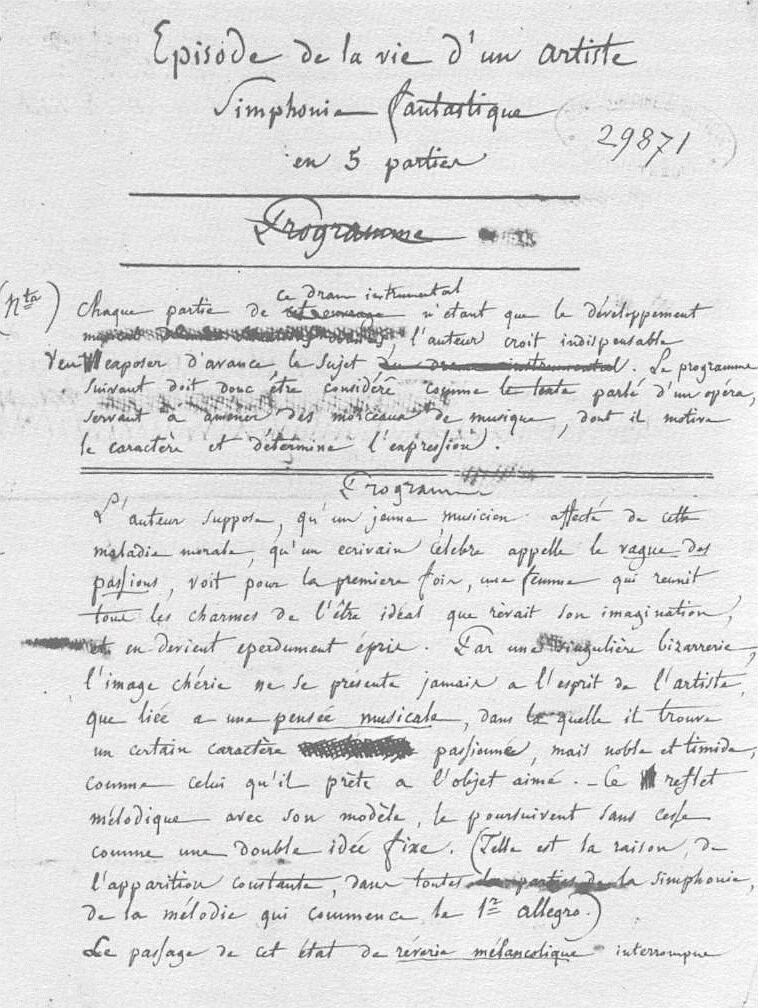 Episode de la vie d'un artiste
Simphonie fantastique
29871
en 5 parties
Programme
(Nta)
ce dram instrumental
Chaque partie de n'etant que le développement
l'auteur croit indispensable
exposer d'avance le sujet du drame instrumental. Le programme
suivant doit donc être considéré comme le texte parlé d'un opéra,
servant à amener des morceaux de musique, dont il motive
le caractère et détermine l'expression.
Programme
L'auteur suppose, qu'un jeune musicien affecté de cette
maladie morale, qu'un ecrivain célèbre appelle le vague des
passions, voit pour la premiere fois, une femme qui reunit
tous les charmes de l'être idéal que rêvait son imagination,
et en devient eperdument épris. Par une singulière bizarrerie,
l'image chérie ne se présente jamais a l'esprit de l'artiste,
que liée a une pensée musicale, dans la quelle il trouve
un certain caractère passionné, mais noble et timide,
comme celui qu'il prète a l'objet aimé. - Ce reflet
mélodique avec son modèle, le poursuivent sans cesse
comme une double idée fixe. (Telle est la raison, de
l'apparition constante, dans toutes les parties de la simphonie,
de la mélodie qui commence le 1er allegro.)
Le passage de cet état de rêverie mélancolique interrompue